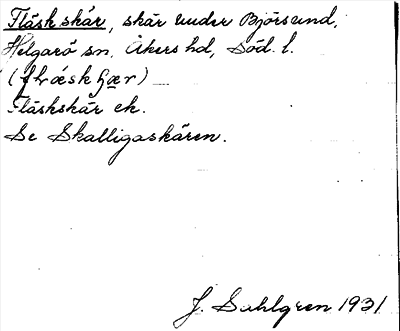 Fläskskär, skär under Björsund,
Helgarö sn, Åkers hd, Söd. l.
Fläskskär ek.
Se Skalligaskären.
J. Sahlgren 1931